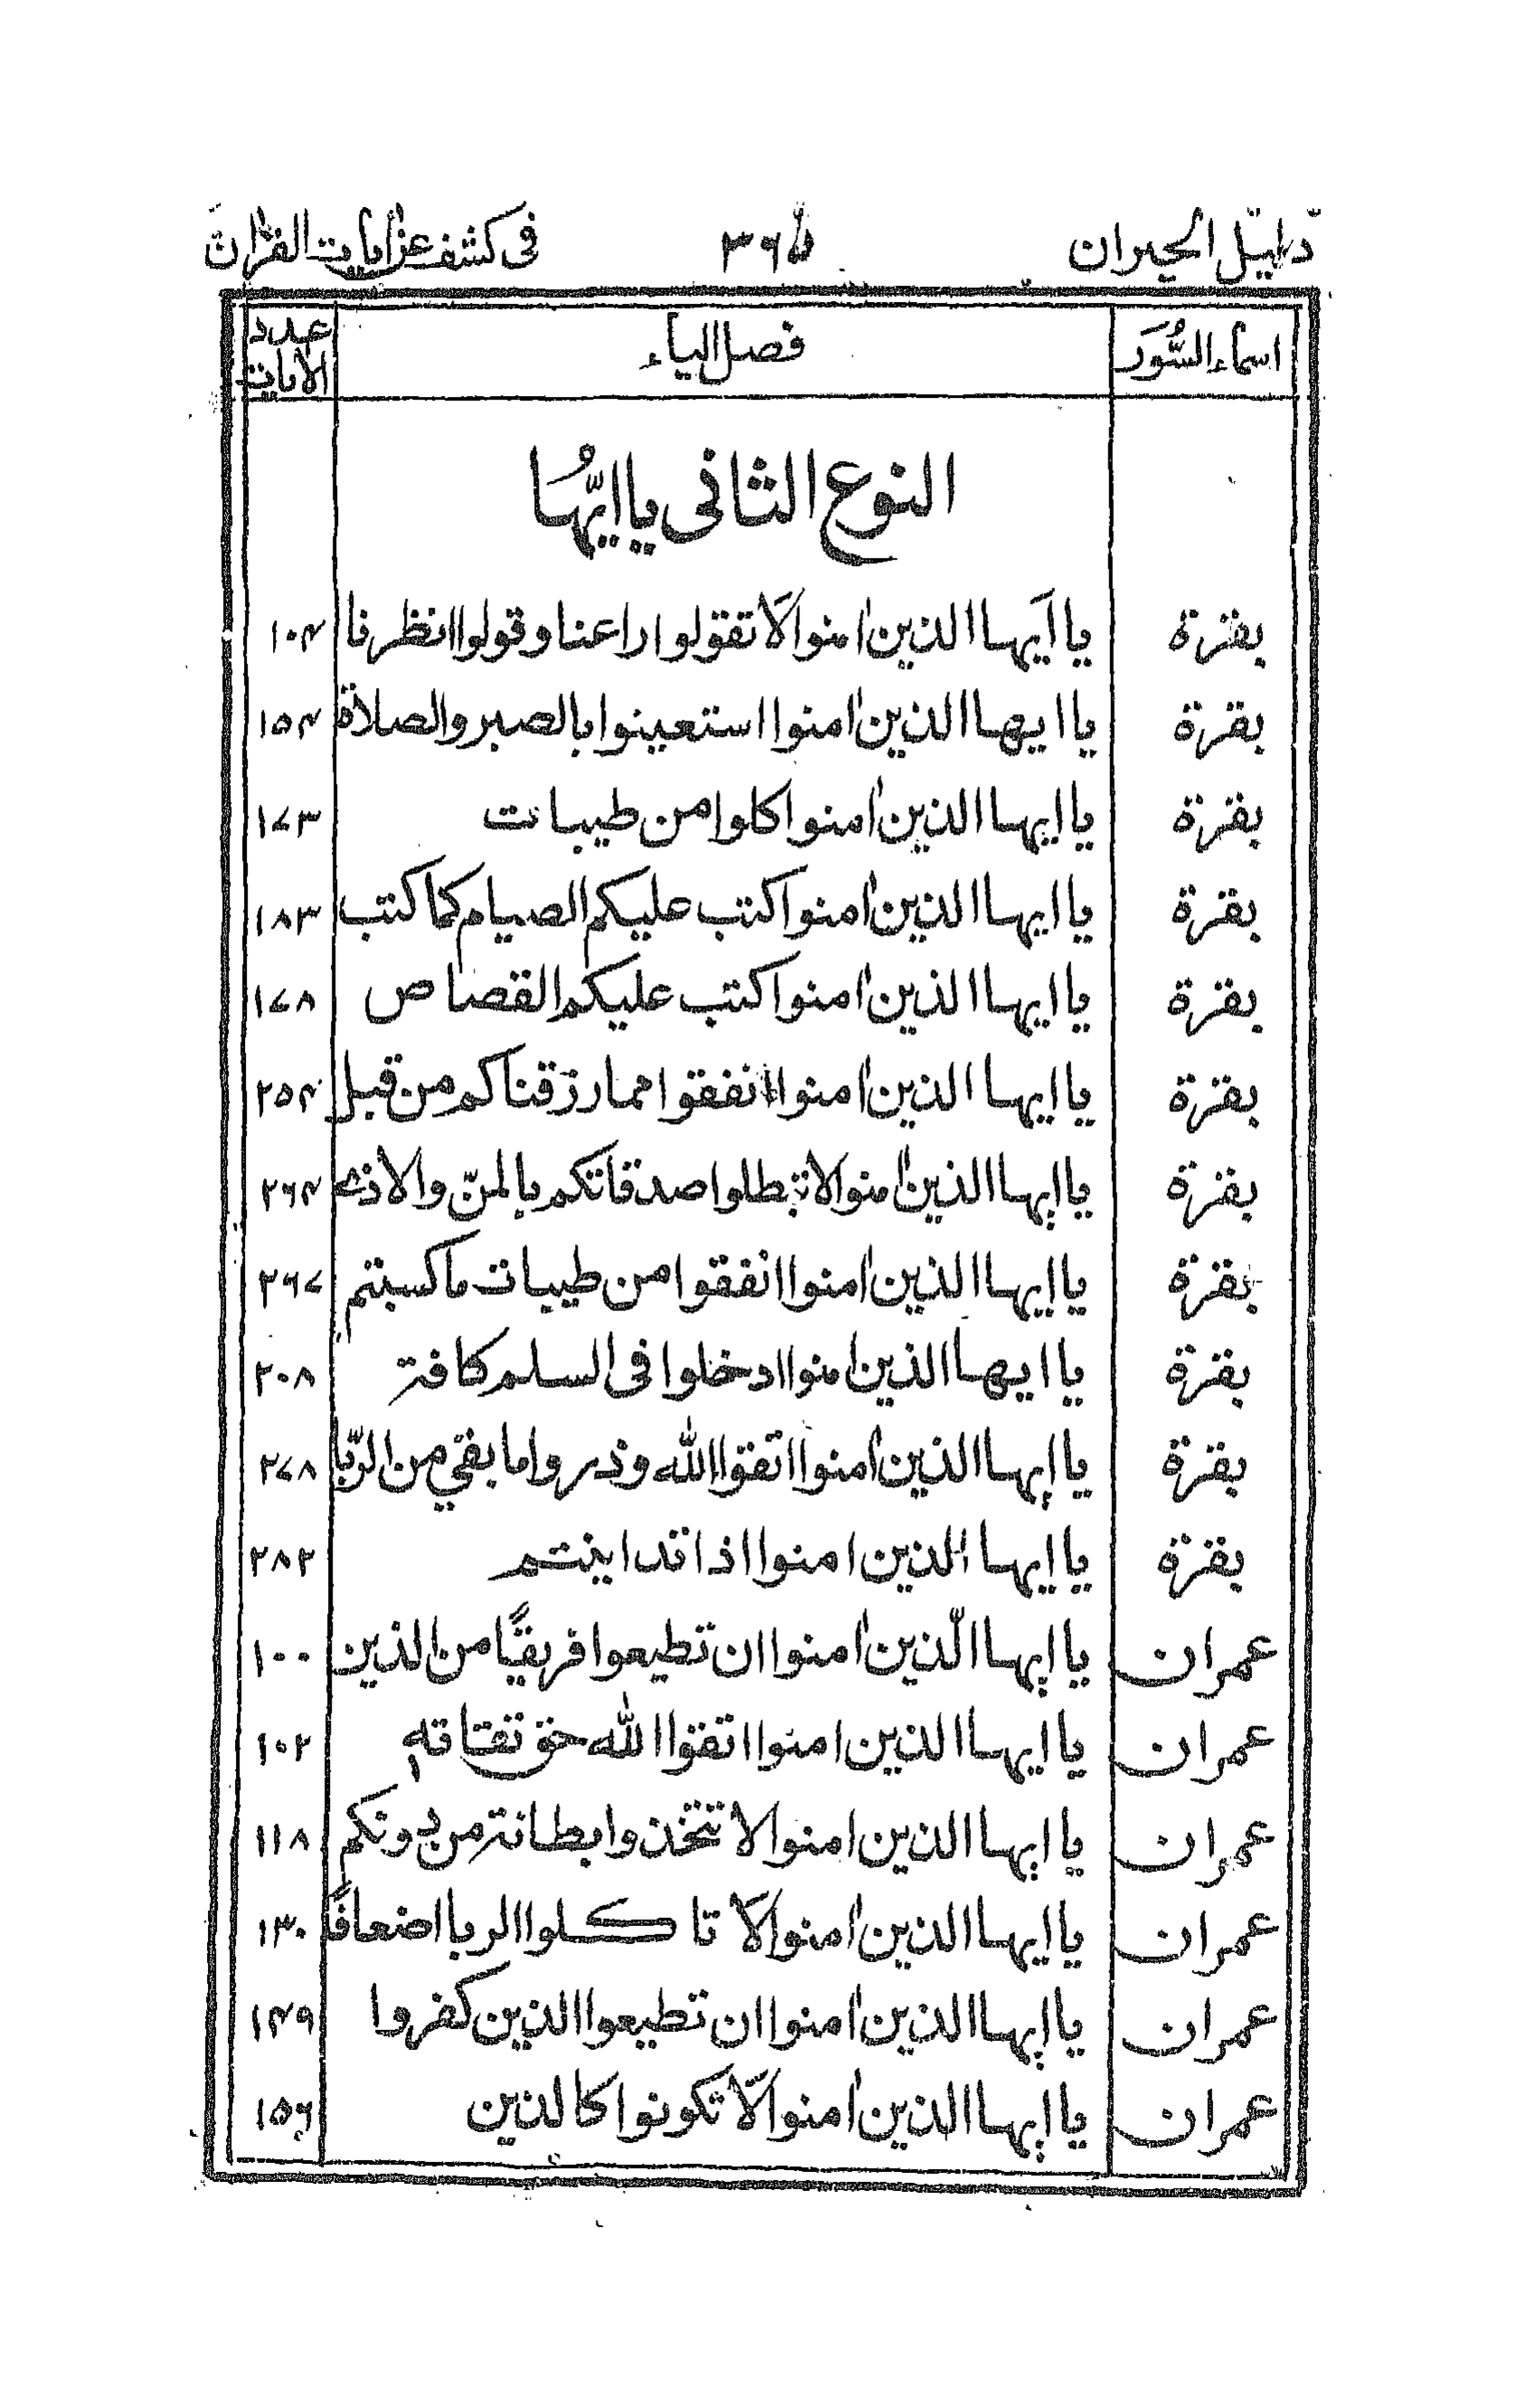 دليل الحيران ٣٦٥ فى كشف عن ايات القران
اسماء السُّوَر فصل الياء عدد الايات
النوع الثانى يا ايّهُا
بقرة يا اَيها الذين اٰمنوا لَا تقولوا راعنا وقولوا انظرنا ١٠٤
بقرة يا ايها الذين اٰمنوا استعينوا بالصبر والصلاة ١٥٤
بقرة يا ايها الذين اٰمنوا كلوا من طيبات ١٧٣
بقرة يا ايها الذين اٰمنوا كتب عليكم الصيام كما كتب ١٨٣
بقرة يا ايها الذين اٰمنوا كتب عليكم القصاص ١٧٨
بقرة يا ايها الذين اٰمنوا انفقوا مما رزقناكم من قبل ٢٥٤
بقرة يا ايها الذين اٰمنوا لا تبطلوا صدقاتكم بالمنّ والاذى ٢٦٤
بقرة يا ايها الذين اٰمنوا انفقوا من طيبات ما كسبتم ٢٦٧
بقرة يا ايها الذين اٰمنوا ادخلوا فى السلم كافة ٢٠٨
بقرة يا ايها الذين اٰمنوا اتقوا الله وذروا ما بقي من الرّبا ٢٧٨
بقرة يا ايها الذين امنوا اذا تداينتم ٢٨٢
عمران يا ايها الّذين اٰمنوا ان تطيعوا فريقًا من الذين ١٠٠
عمران يا ايها الذين امنوا اتقوا الله حق تقتاته ١٠٢
عمران يا ايها الذين امنوا لا تتخذوا بطانة من دونكم ١١٨
عمران يا ايها الذين اٰمنوا لَا تاكلوا الربا اضعافًا ١٣٠
عمران يا ايها الذين اٰمنوا ان تطيعوا الذين كفروا ١٤٩
عمران يا ايها الذين اٰمنوا لَا تكونوا كالذين ١٥٦